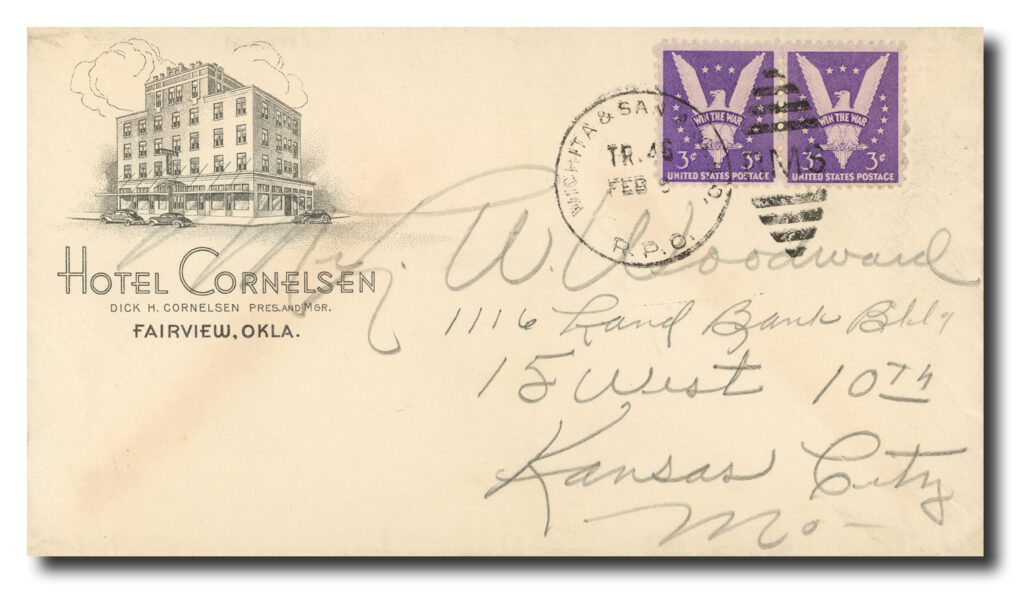 HOTEL CORNELSEN
DICK H. CORNELSEN PRES. AND MGR.
FAIRVIEW, OKLA.
WICHITA & SAN
TR. 46
FEB
R.P.O.
WIN THE WAR
3¢ 3¢
UNITED STATES POSTAGE
WIN THE WAR
3¢ 3¢
UNITED STATES POSTAGE
RMS
W. Woodward
1116 Land Bank Bldg
15 West 10TH
Kansas City
Mo-